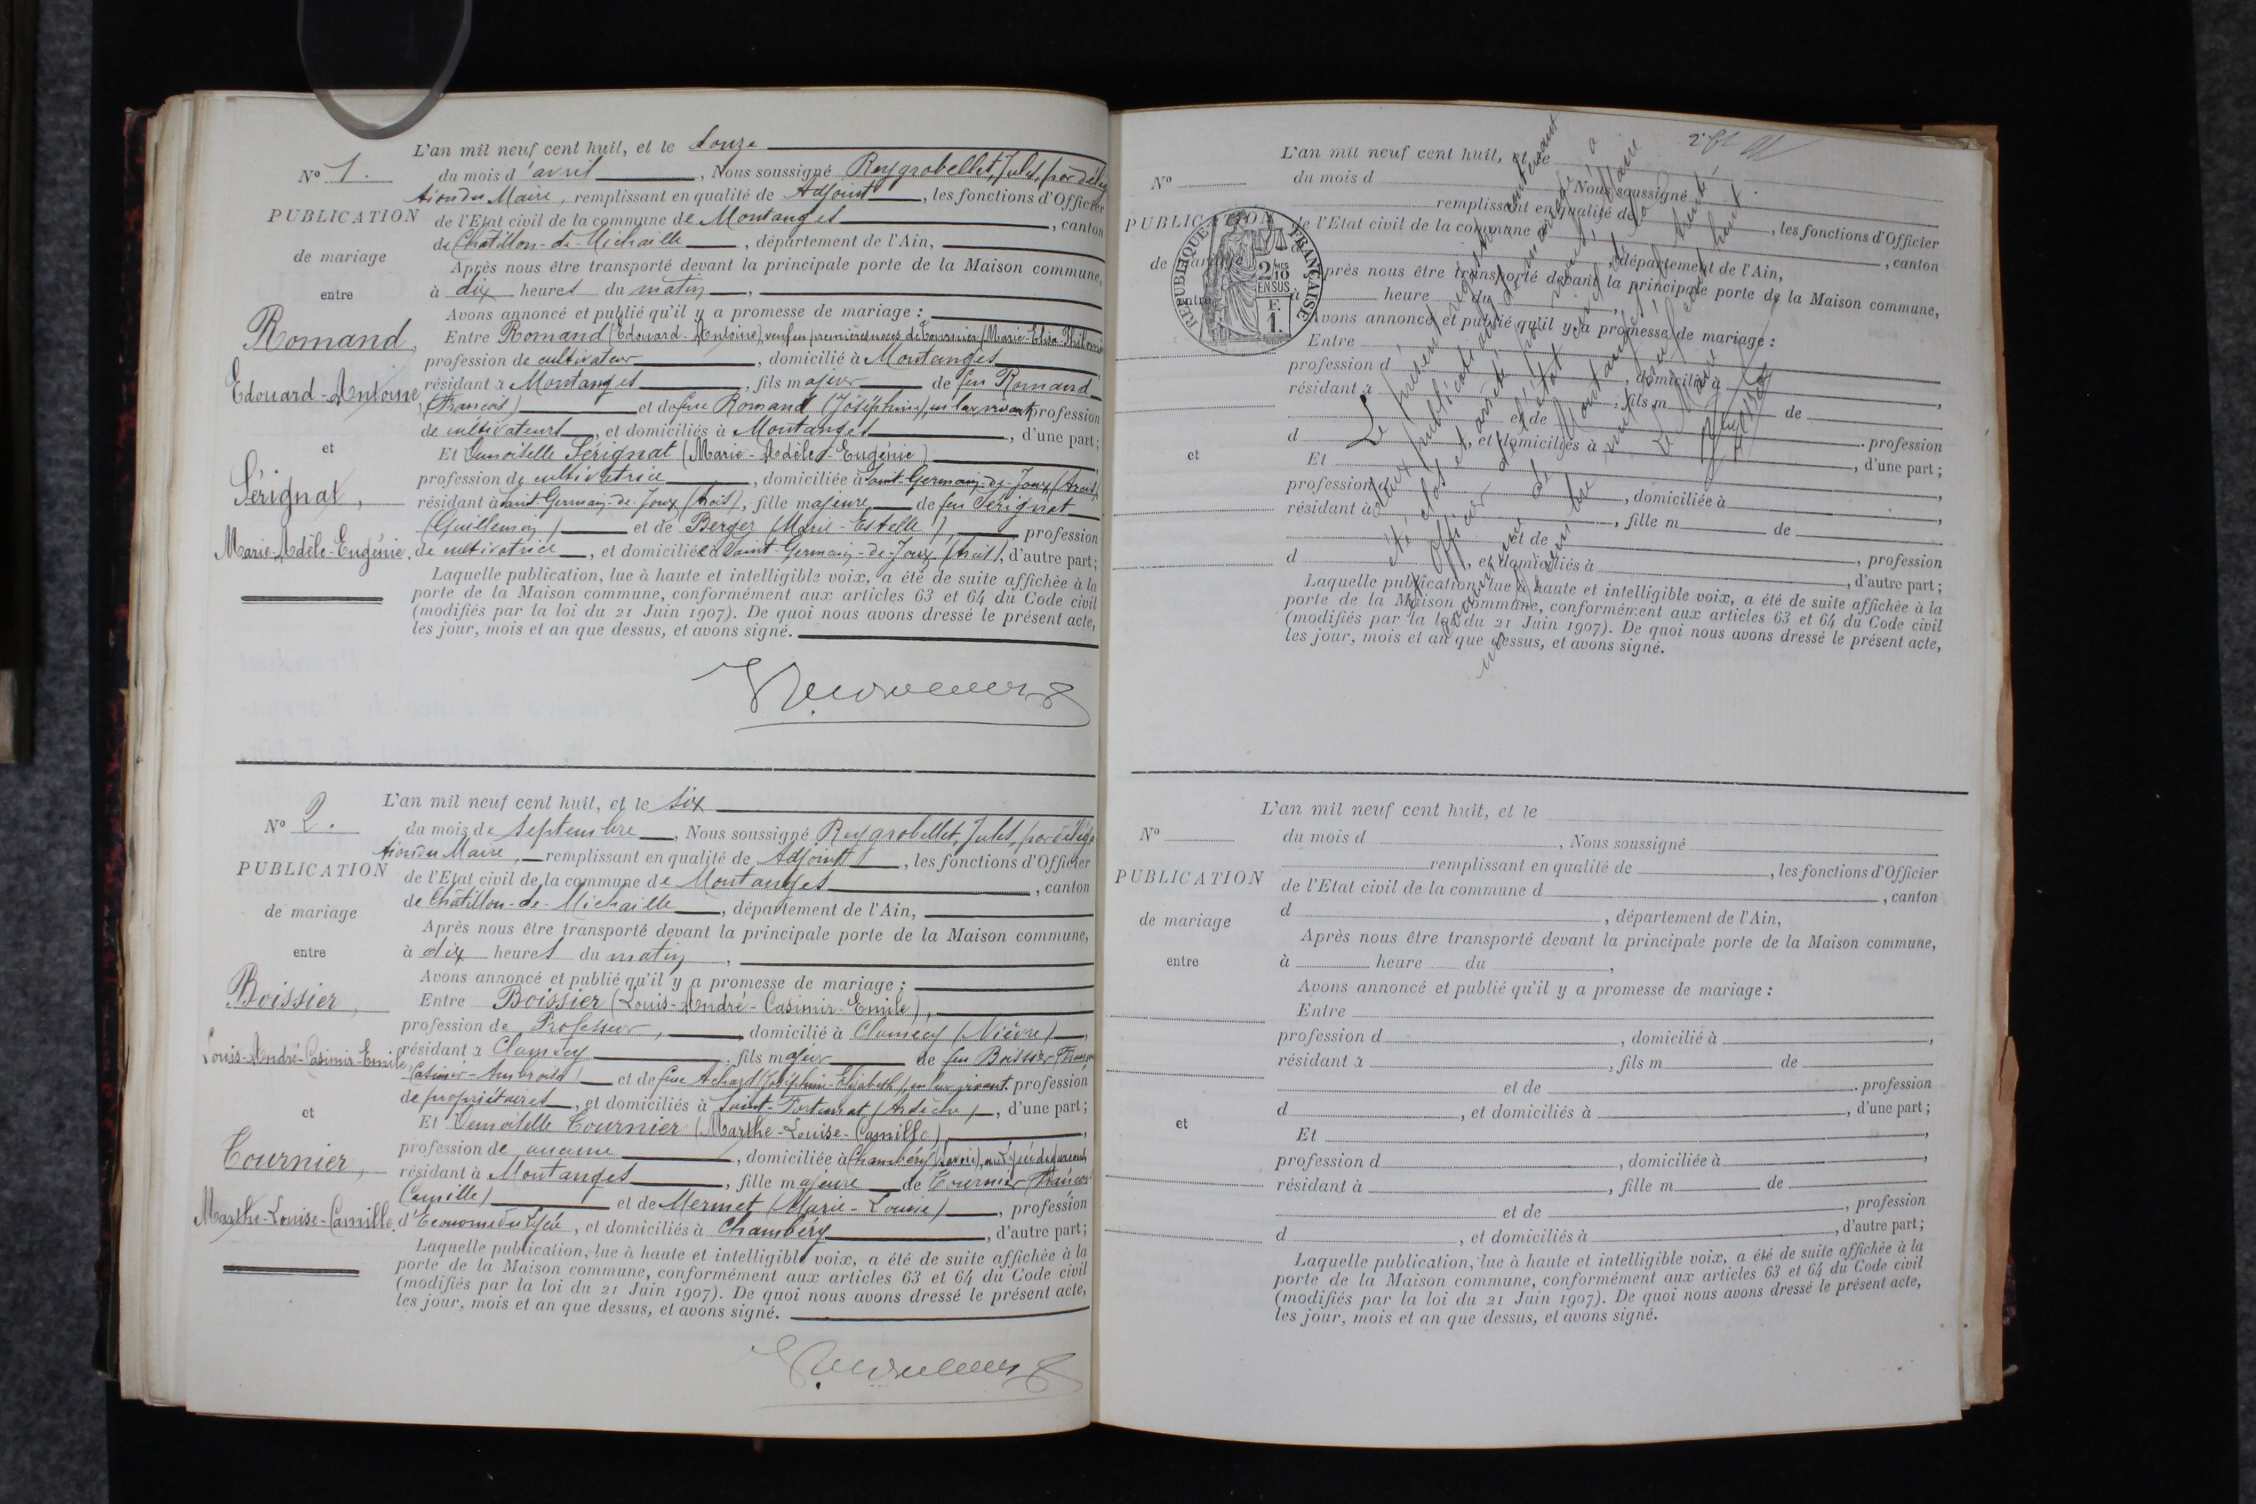 L'an mil neuf cent huit, et le douze
N° 1. du mois d'avril, Nous soussigné Reygrobellet, Jules, par déléga
tion du Maire, remplissant en qualité de Adjoint, les fonctions d'Officier
PUBLICATION de l'Etat civil de la commune de Montanges, canton
de Châtillon-de-Michaille, département de l'Ain,
de mariage Après nous être transporté devant la principale porte de la Maison commune,
entre à dix heures du matin,
Avons annoncé et publié qu'il y a promesse de mariage :
Romand, Entre Romand (Edouard-Antoine), veuf en premières noces de Tournier (Marie-Elisa-Philomène
profession de cultivateur, domicilié à Montanges,
Edouard-Antoine résidant à Montanges, fils majeur de feu Romand
(François) et de feue Romand (Joséphine), en leur vivant profession
de cultivateurs, et domiciliés à Montanges, d'une part;
et Et Demoiselle Sérignat (Marie-Adèle-Eugénie),
profession de cultivatrice, domiciliée à Saint-Germain-de-Joux (Ain),
Sérignat, résidant à Saint-Germain-de-Joux (Ain), fille majeure de feu Sérignat
(Guillemin) et de Berger (Marie-Estelle), profession
Marie-Adèle-Eugénie. de cultivatrice, et domiciliée à Saint-Germain-de-Joux (Ain), d'autre part;
Laquelle publication, lue à haute et intelligible voix, a été de suite affichée à la
porte de la Maison commune, conformément aux articles 63 et 64 du Code civil
(modifiés par la loi du 21 Juin 1907). De quoi nous avons dressé le présent acte,
les jour, mois et an que dessus, et avons signé.
L'an mil neuf cent huit, et le six
N° 2. du mois de septembre, Nous soussigné Reygrobellet, Jules, par déléga
tion du Maire, remplissant en qualité de Adjoint, les fonctions d'Officier
PUBLICATION de l'Etat civil de la commune de Montanges, canton
de Châtillon-de-Michaille, département de l'Ain,
de mariage Après nous être transporté devant la principale porte de la Maison commune,
entre à dix heures du matin,
Avons annoncé et publié qu'il y a promesse de mariage :
Boissier, Entre Boissier (Louis-André-Casimir-Emile),
profession de Professeur, domicilié à Clamecy (Nièvre),
Louis-André-Casimir-Emile résidant à Clamecy, fils majeur de feu Boissier
Casimir-Ambroise) et de feue Achard (Joséphine-Elisabeth), en leur vivant profession
de propriétaires, et domiciliés à Saint-Fortunat (Ardèche), d'une part;
et Et Demoiselle Tournier (Marthe-Louise-Camille),
profession de aucune, domiciliée à Chambéry (Savoie),
Tournier, résidant à Montanges, fille majeure de Tournier (François
Camille) et de Mermet (Marie-Louise), profession
Marthe-Louise-Camille. d'Econome du Lycée, et domiciliés à Chambéry, d'autre part;
Laquelle publication, lue à haute et intelligible voix, a été de suite affichée à la
porte de la Maison commune, conformément aux articles 63 et 64 du Code civil
(modifiés par la loi du 21 Juin 1907). De quoi nous avons dressé le présent acte,
les jour, mois et an que dessus, et avons signé.
L'an mil neuf cent huit, et le
N° du mois d Nous soussigné
remplissant en qualité de, les fonctions d'Officier
PUBLICATION de l'Etat civil de la commune d, canton
d, département de l'Ain,
de mariage Après nous être transporté devant la principale porte de la Maison commune,
entre à heure du,
Avons annoncé et publié qu'il y a promesse de mariage :
Entre
profession d, domicilié à,
résidant à, fils m de
et de profession
d, et domiciliés à, d'une part;
et Et
profession d, domiciliée à,
résidant à, fille m de
et de, profession
d, et domiciliés à, d'autre part;
Laquelle publication, lue à haute et intelligible voix, a été de suite affichée à la
porte de la Maison commune, conformément aux articles 63 et 64 du Code civil
(modifiés par la loi du 21 Juin 1907). De quoi nous avons dressé le présent acte,
les jour, mois et an que dessus, et avons signé.
RÉPUBLIQUE FRANÇAISE
2/10 EN SUS
F. 1.
Le présent registre contenant
deux publications de mariage a
été clos et arrêté par nous, Maire
et Officier de l'état civil de la
commune de Montanges le trente
un décembre mil neuf cent huit.
Le Maire
L'an mil neuf cent huit, et le
N° du mois d, Nous soussigné
remplissant en qualité de, les fonctions d'Officier
PUBLICATION de l'Etat civil de la commune d, canton
d, département de l'Ain,
de mariage Après nous être transporté devant la principale porte de la Maison commune,
entre à heure du,
Avons annoncé et publié qu'il y a promesse de mariage :
Entre
profession d, domicilié à,
résidant à, fils m de
et de profession
d, et domiciliés à, d'une part;
et Et
profession d, domiciliée à,
résidant à, fille m de
et de, profession
d, et domiciliés à, d'autre part;
Laquelle publication, lue à haute et intelligible voix, a été de suite affichée à la
porte de la Maison commune, conformément aux articles 63 et 64 du Code civil
(modifiés par la loi du 21 Juin 1907). De quoi nous avons dressé le présent acte,
les jour, mois et an que dessus, et avons signé.